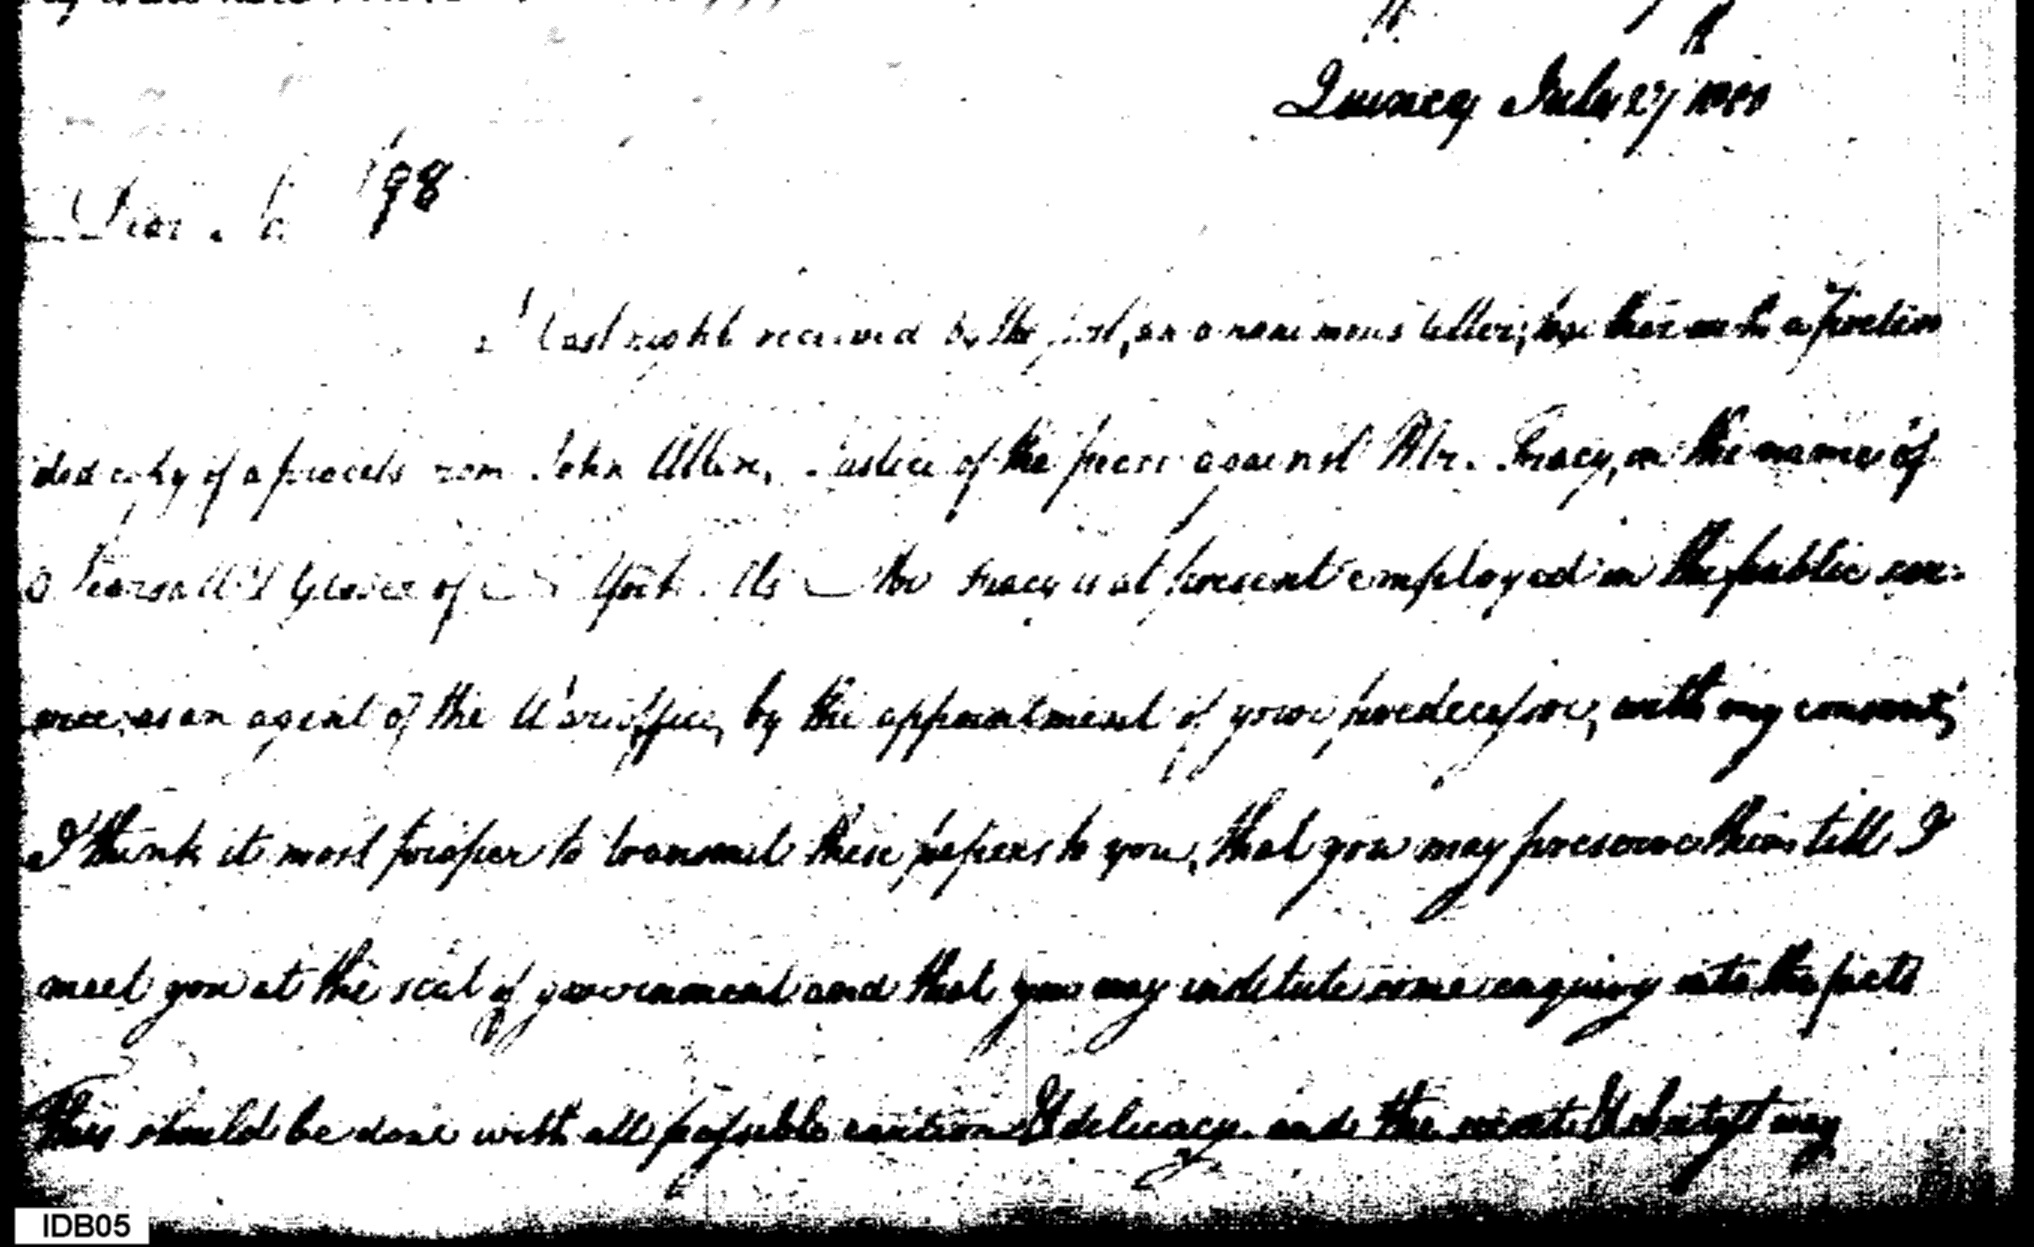 Quincy July 27 1800
Dear Sir 198
I last night received by the post, an anonimous letter, together with a preten
ded copy of a process from John Allen, Justice of the peace against Mr. Tracy, in the names of
Pearsall & Glover of N York. As Mr Tracy is at present employed in the public ser-
vice, as an agent of the War office, by the appointment of your predecessor, with my consent,
I think it most proper to transmit these papers to you, that you may preserve them till I
meet you at the seat of government and that you may institute some enquiry into the facts
This should be done with all possible caution & delicacy and the secret & way
IDB05